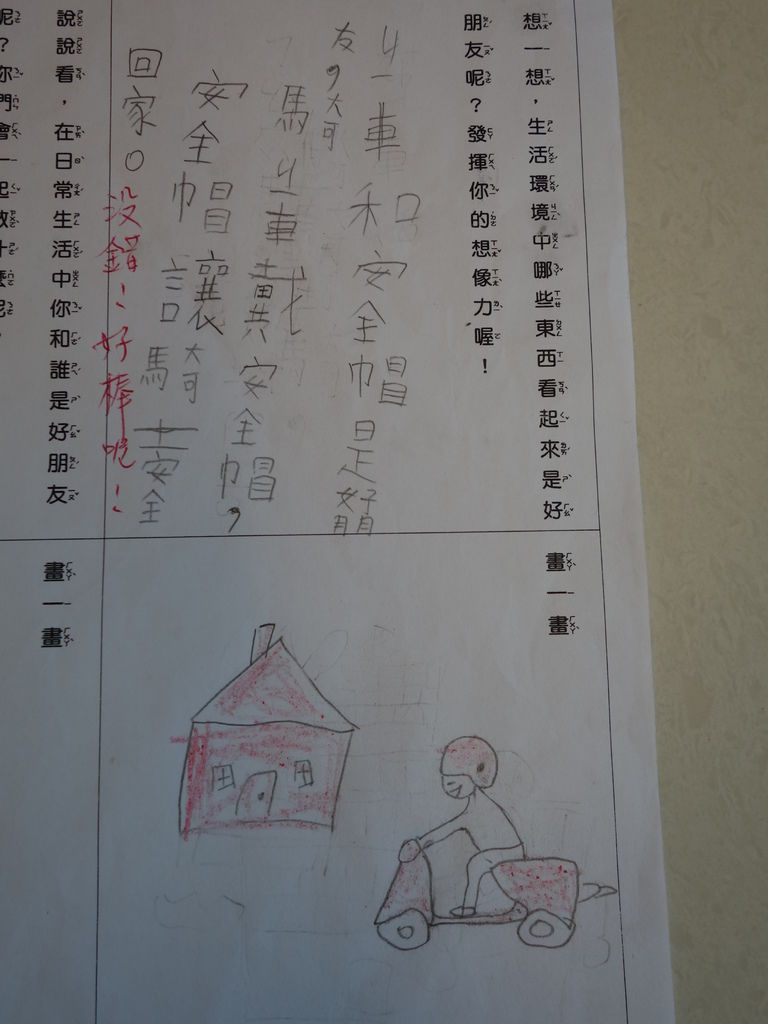 想一想，生活環境中哪些東西看起來是好
朋友呢？發揮你的想像力喔！
ㄐ一車和安全帽是好朋
友，騎ㄐ一車戴安全帽，
安全帽讓騎士安全
回家。
沒錯！好棒呢！
畫一畫
說說看，在日常生活中你和誰是好朋友
呢？你們會一起做什麼呢？
畫一畫